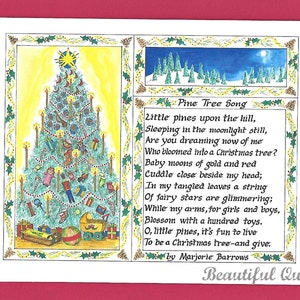 Pine Tree Song
Little pines upon the hill,
Sleeping in the moonlight still,
Are you dreaming now of me
Who bloomed into a Christmas tree?
Baby moons of gold and red
Cuddle close beside my head;
In my tangled leaves a string
Of fairy stars are glimmering;
While my arms, for girls and boys,
Blossom with a hundred toys.
O, little pines, it's fun to live
To be a Christmas tree—and give.
by Marjorie Barrows
Beautiful Qu